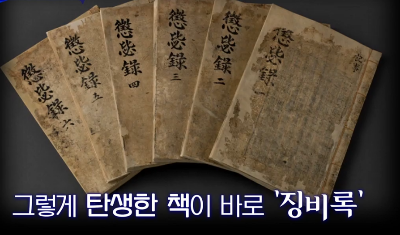 懲毖錄 六
懲毖錄 五
懲毖錄 四
懲毖錄 三
懲毖錄 二
懲毖錄 一
그렇게 탄생한 책이 바로 '징비록'